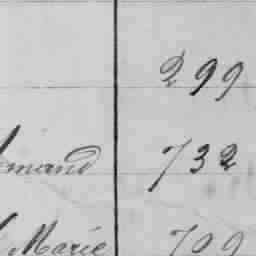 299
mand 732
Marie 709